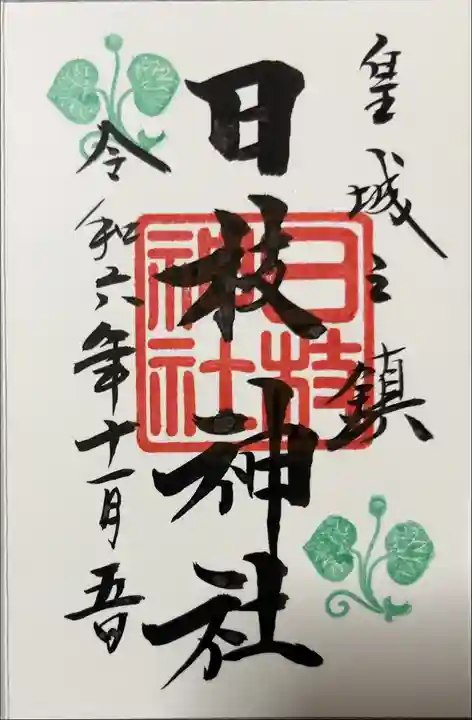 皇城之鎮
日枝神社
日枝神社
令和六年十一月五日